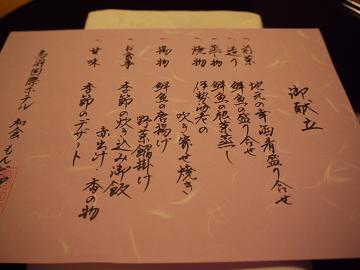 御献立
前菜 地元の幸酒肴盛り合せ
造り 鮮魚の盛り合せ
蒸し物 鮮魚の根菜蒸し
焼物 伊勢海老の
吹き寄せ焼き
揚物 鮮魚の唐揚げ
野菜餡掛け
お食事 季節の炊き込み御飯
赤出汁・香の物
甘味 季節のデザート
鳥羽国際ホテル
和会